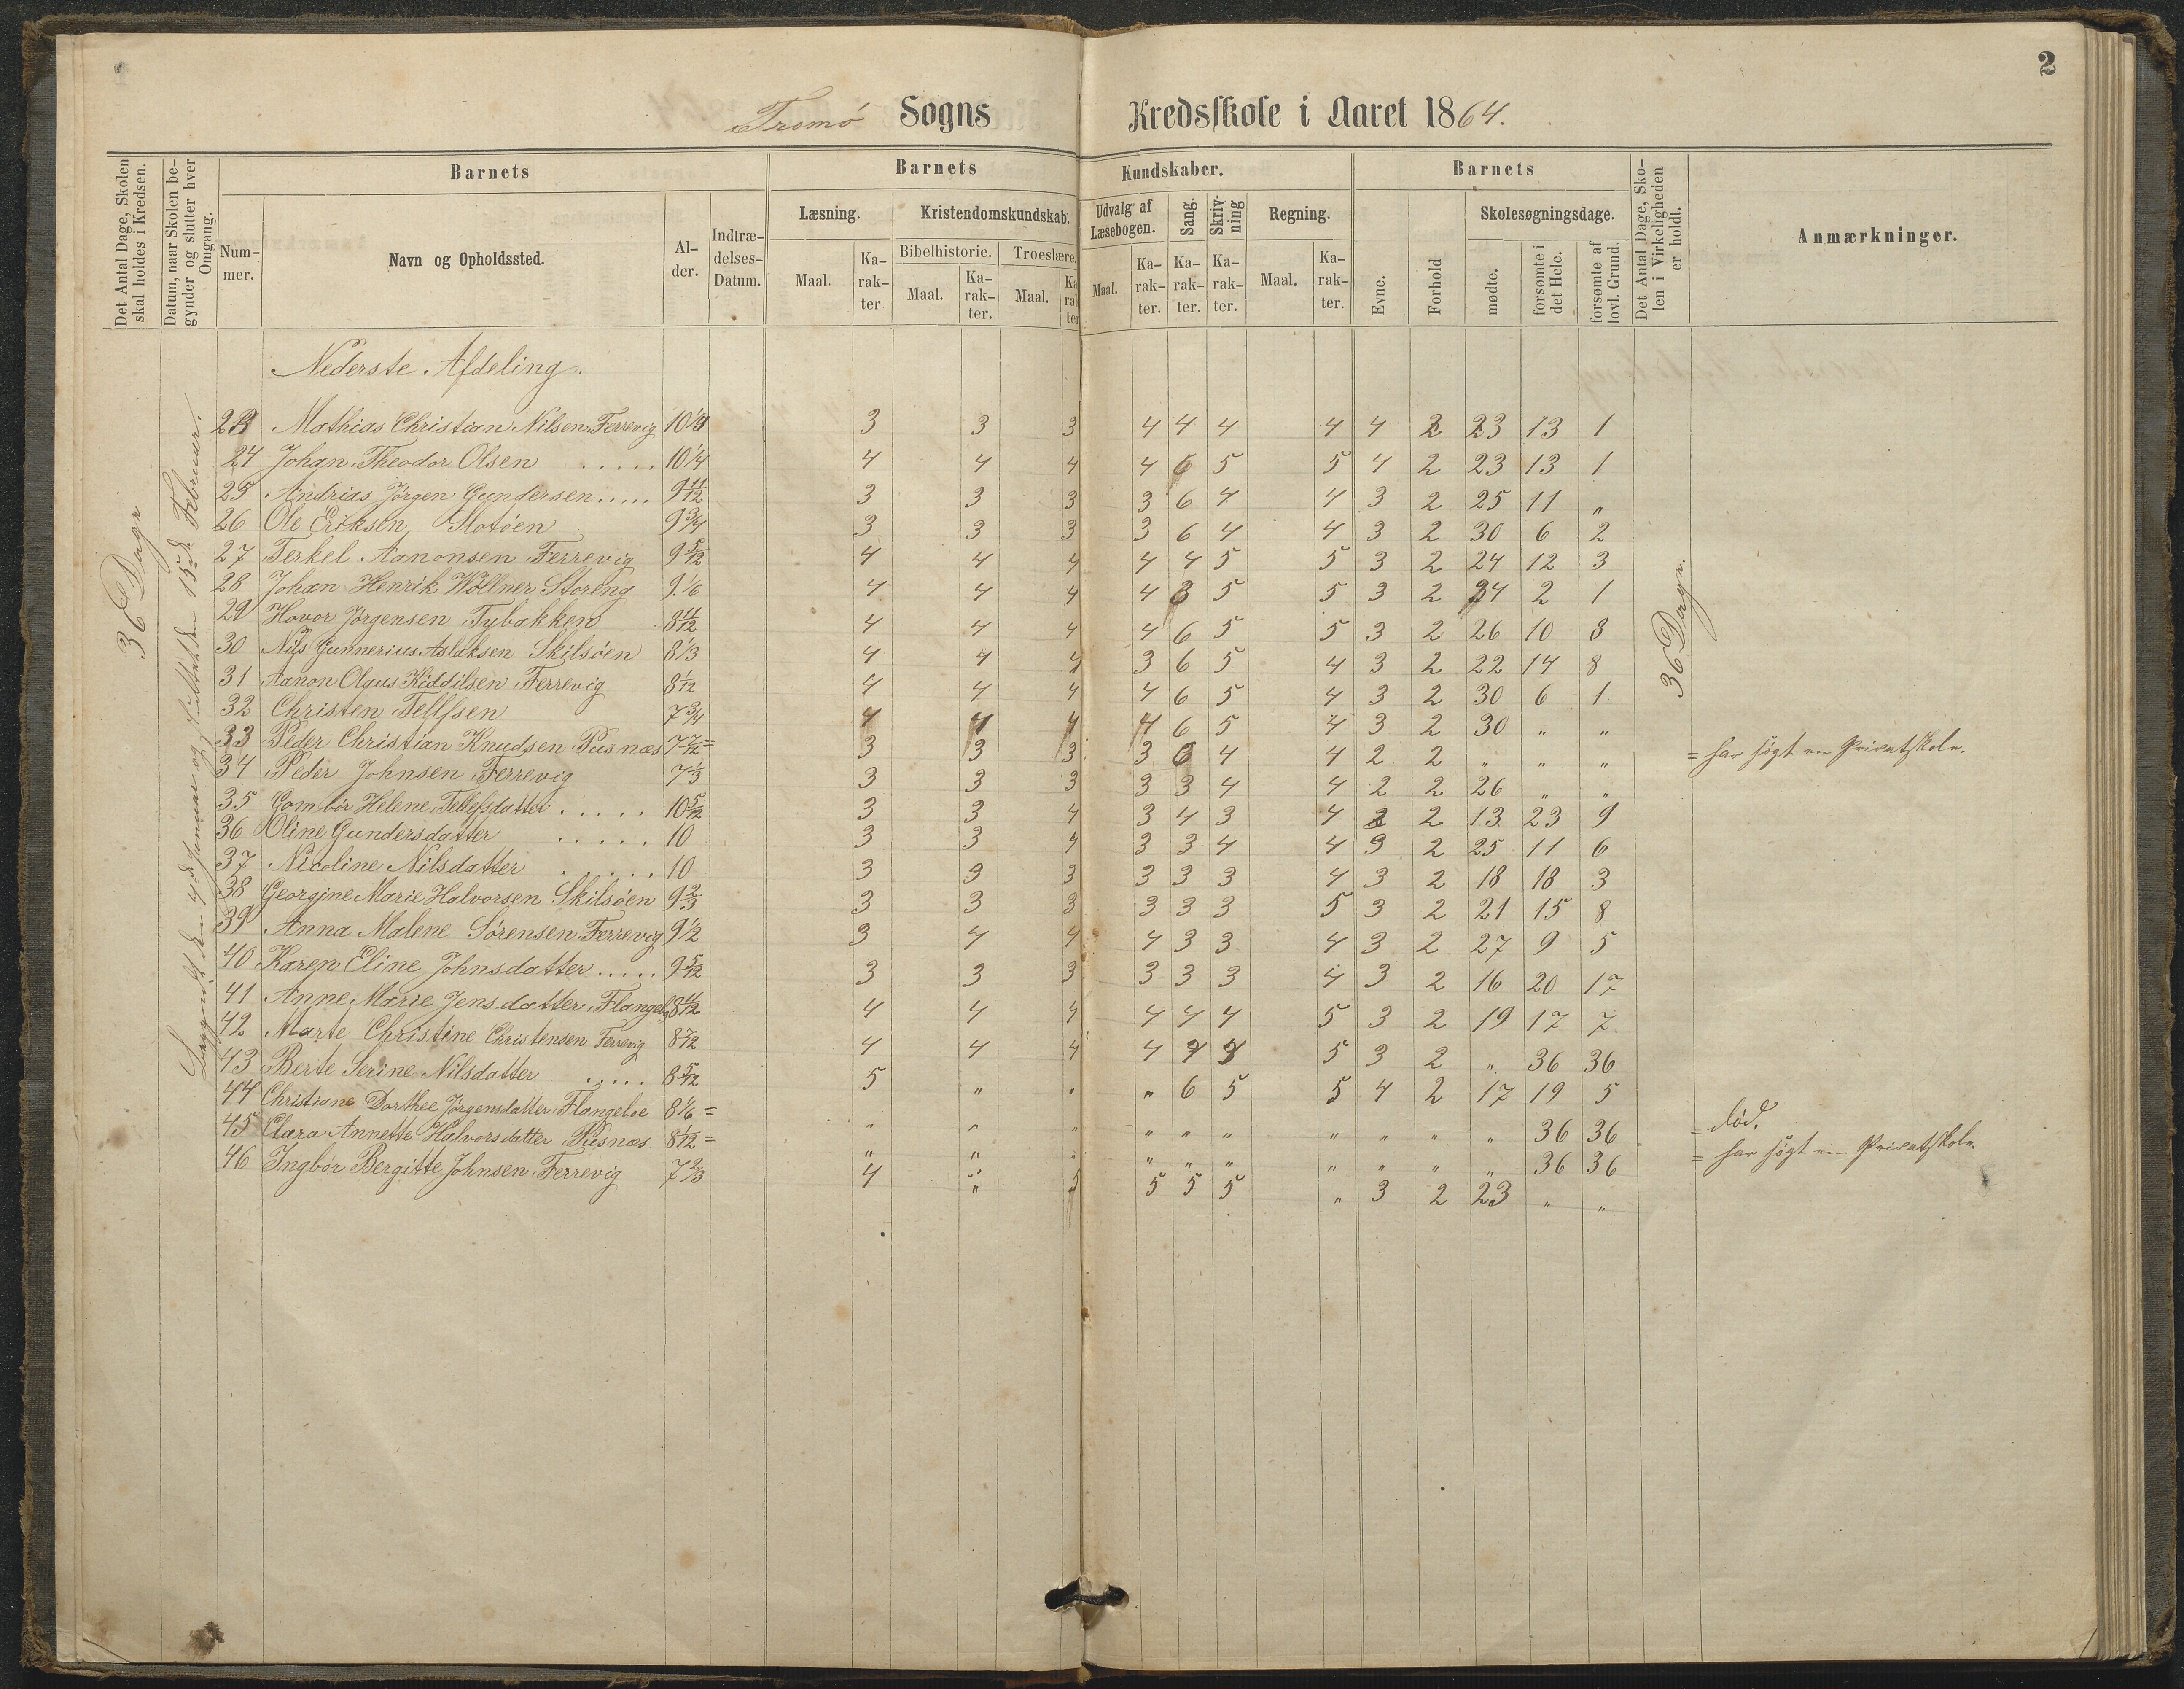 2
Tromö Sogns Kredsskole i Aaret 1864.
Det Antal Dage, Skolen skal holdes i Kredsen.
Datum, naar Skolen begynder og slutter hver Omgang.
Barnets
Nummer.
Navn og Opholdssted.
Alder.
Indtrædelses-Datum.
Barnets Kundskaber.
Læsning.
Maal.
Karakter.
Kristendomskundskab.
Bibelhistorie.
Maal.
Karakter.
Troeslære.
Maal.
Karakter
Udvalg af Læsebogen.
Maal.
Karakter.
Sang.
Karakter.
Skrivning
Karakter.
Regning.
Maal.
Karakter.
Barnets
Evne.
Forhold
Skolesøgningsdage.
mødte.
forsømte i det Hele.
forsømte af lovl. Grund.
Det Antal Dage, Skolen i Virkeligheden er holdt.
Anmærkninger.
36 Dage
den 4de Januar og sluttet den 15de Februar.
36 Dage.
Nederste Afdeling.
23 Mathias Christian Nilsen Ferrevig 10 3 3 3 4 4 4 4 4 2 23 13 1
24 Johan Theodor Olsen ..... 10 1/4 4 4 4 4 6 5 5 4 2 23 13 1
25 Andrias Jörgen Gundersen ..... 9 11/12 3 3 3 3 6 4 4 3 2 25 11 "
26 Ole Eriksen 9 3/4 3 3 3 3 6 4 4 3 2 30 6 2
27 Terkel Aanonsen Ferrevig 9 5/12 4 4 4 4 4 5 5 3 2 24 12 3
28 Johan Henrik Wöllner Storeng 9 1/6 4 4 4 4 3 5 5 3 2 34 2 1
29 Hovor Jörgensen Tybakken 8 11/12 4 4 4 4 6 5 5 3 2 26 10 8
30 Nils Gunnerius Aslaksen Skilsöen 8 1/3 4 4 4 3 6 5 4 3 2 22 14 8
31 Aanon Olaus Kiddilsen Ferrevig 8 1/12 4 4 4 4 6 5 4 3 2 30 6 1
32 Christen Tellfsen 7 3/4 4 4 4 4 6 5 4 3 2 30 " "
33 Peder Christian Knudsen Pusnæs 7 7/12 = 3 3 3 3 6 4 4 2 2 " " " = har sögt en Privatskole.
34 Peder Johnsen Ferrevig 7 1/3 3 3 3 3 3 4 4 2 2 26 " "
35 Gombör Helene Tellefsdatter ..... 10 5/12 3 3 4 3 4 3 4 2 13 23 9
36 Oline Gundersdatter ..... 10 3 3 4 3 3 4 4 3 2 25 11 6
37 Nicoline Nilsdatter ..... 10 3 3 3 3 3 3 4 3 2 18 18 3
38 Georgine Marie Halvorsen Skilsöen 9 2/3 3 3 3 3 3 3 5 3 2 21 15 8
39 Anna Malene Sörensen Ferrevig 9 1/2 3 4 4 4 3 3 4 3 2 27 9 5
40 Karen Eline Johnsdatter ..... 9 5/12 3 3 3 3 3 3 4 3 2 16 20 17
41 Anne Marie Jensdatter 8 11/12 4 4 4 4 4 4 5 3 2 19 17 7
42 Marte Christine Christensen Ferrevig 8 7/12 4 4 4 4 4 5 3 2 " 36 36
43 Berte Serine Nilsdatter ..... 8 5/12 5 " " " 6 5 5 4 2 17 19 5
44 Christiane Dorthee Jörgensdatter Flangeboe 8 1/6 = " " " " " " " " " " 36 36 = död.
45 Clara Annette Halvorsdatter Pusnæs 8 1/12 = " " " " " " " " " " 36 36 = har sögt en Privatskole.
46 Ingbör Bergitte Johnsen Ferrevig 7 2/3 4 " 5 5 5 5 " 3 2 23 " "